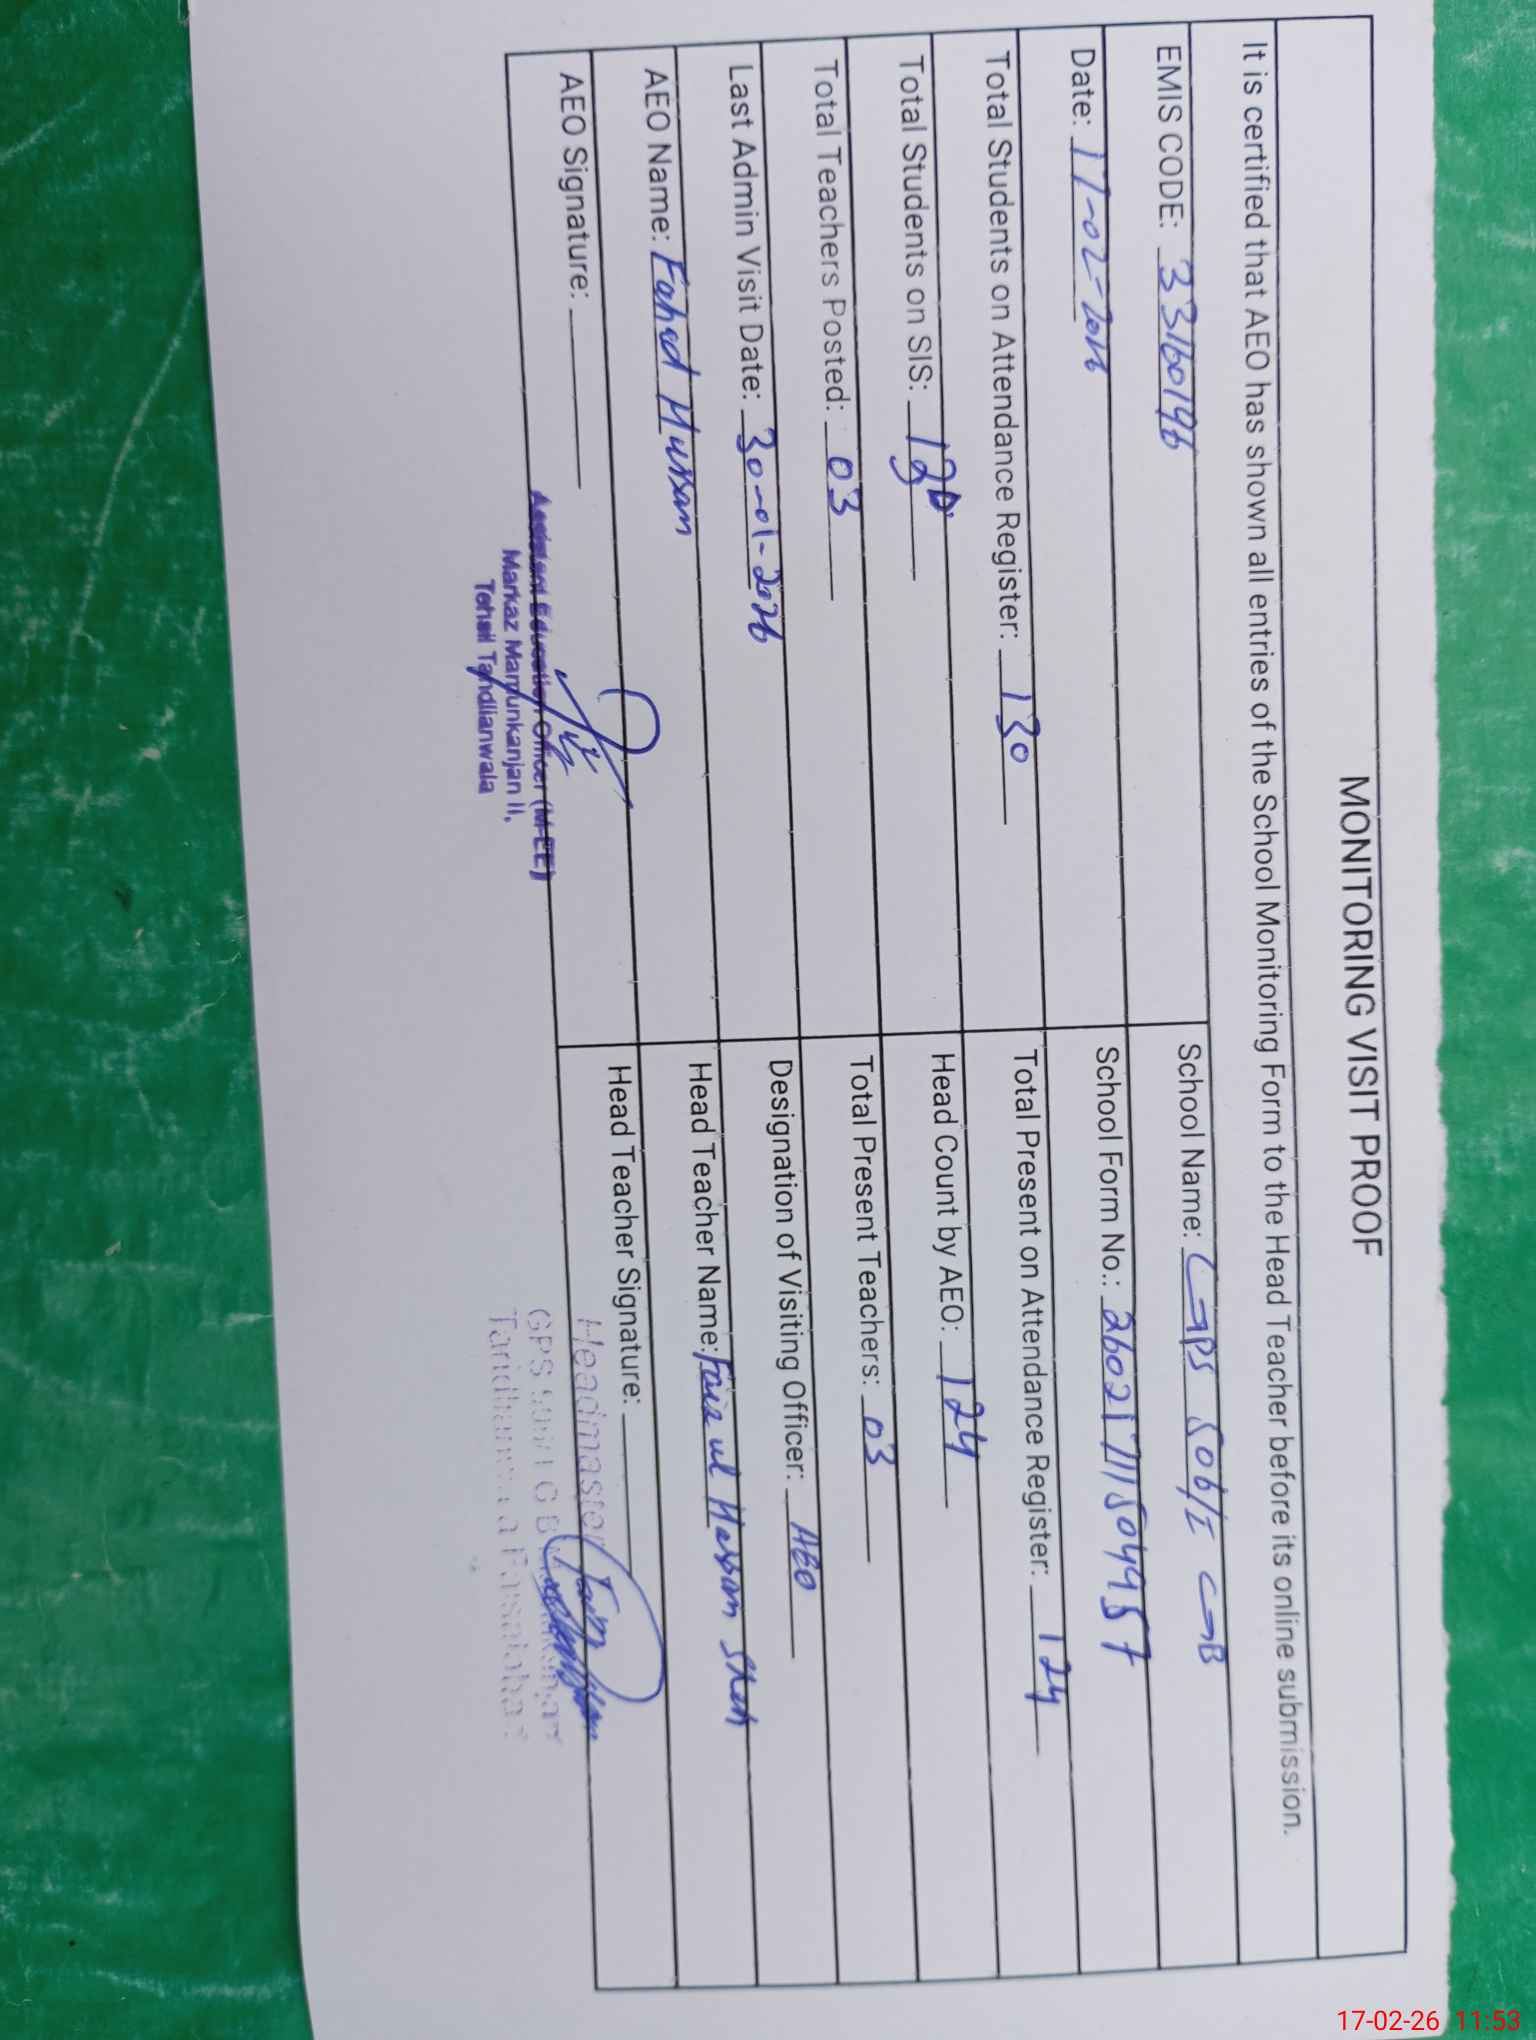 MONITORING VISIT PROOF
It is certified that AEO has shown all entries of the School Monitoring Form to the Head Teacher before its online submission.
EMIS CODE: 33160196
School Name: GPS 506/I GB
Date: 17-02-2026
School Form No.: 26021711504957
Total Students on Attendance Register: 130
Total Present on Attendance Register: 124
Total Students on SIS: 130
Head Count by AEO: 124
Total Teachers Posted: 03
Total Present Teachers: 03
Last Admin Visit Date: 30-01-2026
Designation of Visiting Officer: AEO
AEO Name: Fahad Hussan
Head Teacher Name: Faiz ul Hassan Shah
AEO Signature:
Head Teacher Signature:
Assistant Education Officer (M-EE)
Markaz Mamunkanjan II,
Tehsil Tandlianwala
Headmaster
GPS
17-02-26 11:53